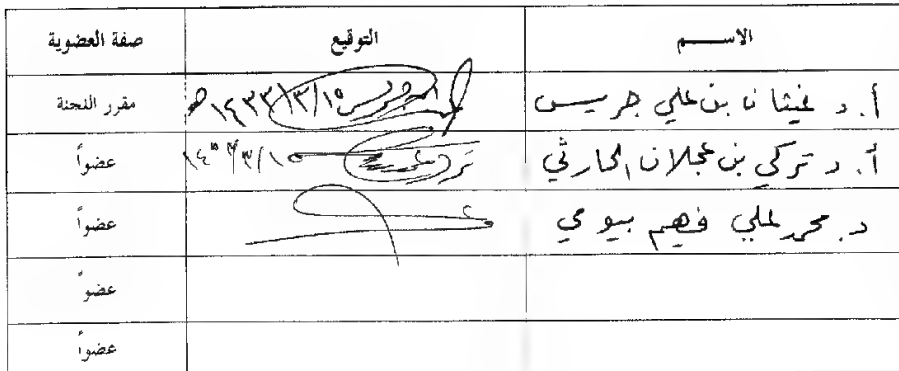 الاســـم التوقيع صفة العضوية
أ.د غيثان بن علي جريس ١٤٣٣/٣/١٥هـ مقرر اللجنة
أ.د تركي بن عجلان الحارثي عضواً
د. محمد علي فهيم بيومي عضواً
عضواً
عضواً